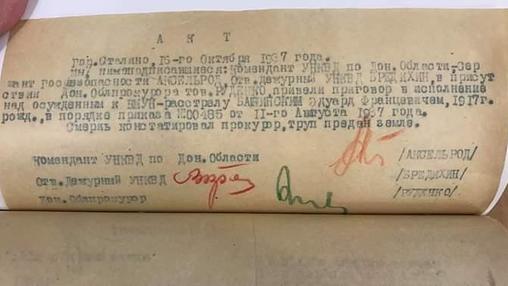 А К Т
гор. Сталино, 16-го Октября 1937 года.
Мы, нижеподписавшиеся: Комендант УНКВД по Дон. Области-Сер
жант госбезопасности АКСЕЛЬРОД, Отв. Дежурный УНКВД БРЕДИХИН, в присут
ствии Дон. Облпрокурора тов. РУДЕНКО привели приговор в исполнение
над осужденным к ВМУН-расстрелу Эдуард Францевичем, 1917г.
рожд., в порядке приказа №00485 от 11-го Августа 1937 года.
Смерть констатировал прокурор, труп предан земле.
Комендант УНКВД по Дон. Области /АКСЕЛЬРОД/
Отв. Дежурный УНКВД /БРЕДИХИН/
Дон. Облпрокурор /РУДЕНКО/